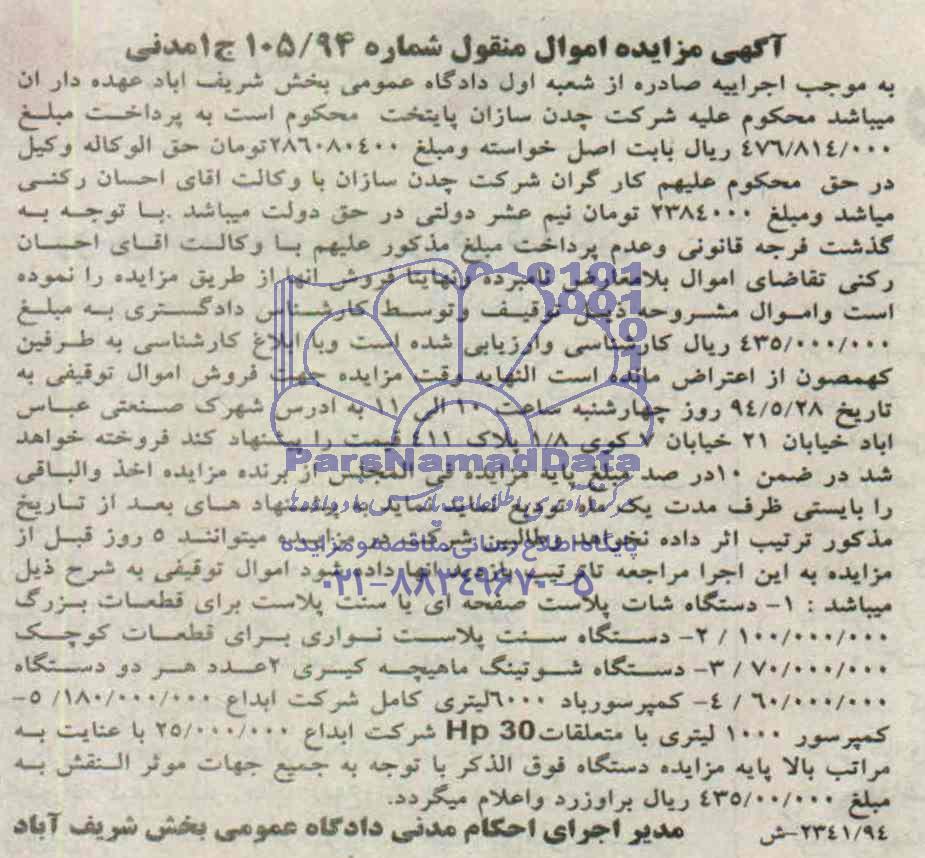 آگهی مزایده اموال منقول شماره ۱۰۵/۹۴ ج۱مدنی
به موجب اجراییه صادره از شعبه اول دادگاه عمومی بخش شریف اباد عهده دار ان
میباشد محکوم علیه شرکت چدن سازان پایتخت محکوم است به پرداخت مبلغ
٤٧٦/٨١٤/٠٠٠ ریال بابت اصل خواسته ومبلغ ٢٨٦٠٨٠٤٠٠تومان حق الوکاله وکیل
در حق محکوم علیهم کار گران شرکت چدن سازان با وکالت اقای احسان رکنی
میاشد ومبلغ ٢٣٨٤٠٠٠ تومان نیم عشر دولتی در حق دولت میباشد .با توجه به
گذشت فرجه قانونی وعدم پرداخت مبلغ مذکور علیهم با وکالت اقای احسان
رکنی تقاضای اموال بلامعارض نامبرده ونهایتا فروش انها از طریق مزایده را نموده
است واموال مشروحه ذیل توقیف وتوسط کارشناس دادگستری به مبلغ
٤٣٥/٠٠٠/٠٠٠ ریال کارشناسی وارزیابی شده است وبا ابلاغ کارشناسی به طرفین
کهمصون از اعتراض مانده است النهایه وقت مزایده جهت فروش اموال توقیفی به
تاریخ ٩٤/٥/٢٨ روز چهارشنبه ساعت ١٠ الی ١١ به ادرس شهرک صنعتی عباس
اباد خیابان ٢١ خیابان ٧ کوی ١/٨ پلاک ٤١١ قیمت را پیشنهاد کند فروخته خواهد
شد در ضمن ١٠در صد مبلغ پایه مزایده فی المجلس از برنده مزایده اخذ والباقی
را بایستی ظرف مدت یک ماه تودیع نماید به پیشنهاد های بعد از تاریخ
مذکور ترتیب اثر داده نخواهد وطالبین شرکت در مزایده میتوانند ٥ روز قبل از
مزایده به این اجرا مراجعه تاترتیب بازدید انها داده شود اموال توقیفی به شرح ذیل
میباشد : ١- دستگاه شات پلاست صفحه ای یا سنت پلاست برای قطعات بزرگ
١٠٠/٠٠٠/٠٠٠ / ٢- دستگاه سنت پلاست نواری برای قطعات کوچک
٧٠/٠٠٠/٠٠٠ / ٣- دستگاه شوتینگ ماهیچه گیری ٢عدد هر دو دستگاه
٦٠/٠٠٠/٠٠٠ / ٤- کمپرسورباد ٦٠٠٠لیتری کامل شرکت ابداع ١٨٠/٠٠٠/٠٠٠/ ٥-
کمپرسور ١٠٠٠ لیتری با متعلقات30 Hp شرکت ابداع ٢٥/٠٠٠/٠٠٠ با عنایت به
مراتب بالا پایه مزایده دستگاه فوق الذکر با توجه به جمیع جهات موثر النقش به
مبلغ ٤٣٥/٠٠/٠٠٠ ریال براوزرد واعلام میگردد.
٢٣٤١/٩٤-ش مدیر اجرای احکام مدنی دادگاه عمومی بخش شریف آباد
ParsNamadData
پایگاه اطلاع رسانی مناقصه و مزایده
۰۲۱-۸۸۳۴۹۶۷۰-۵